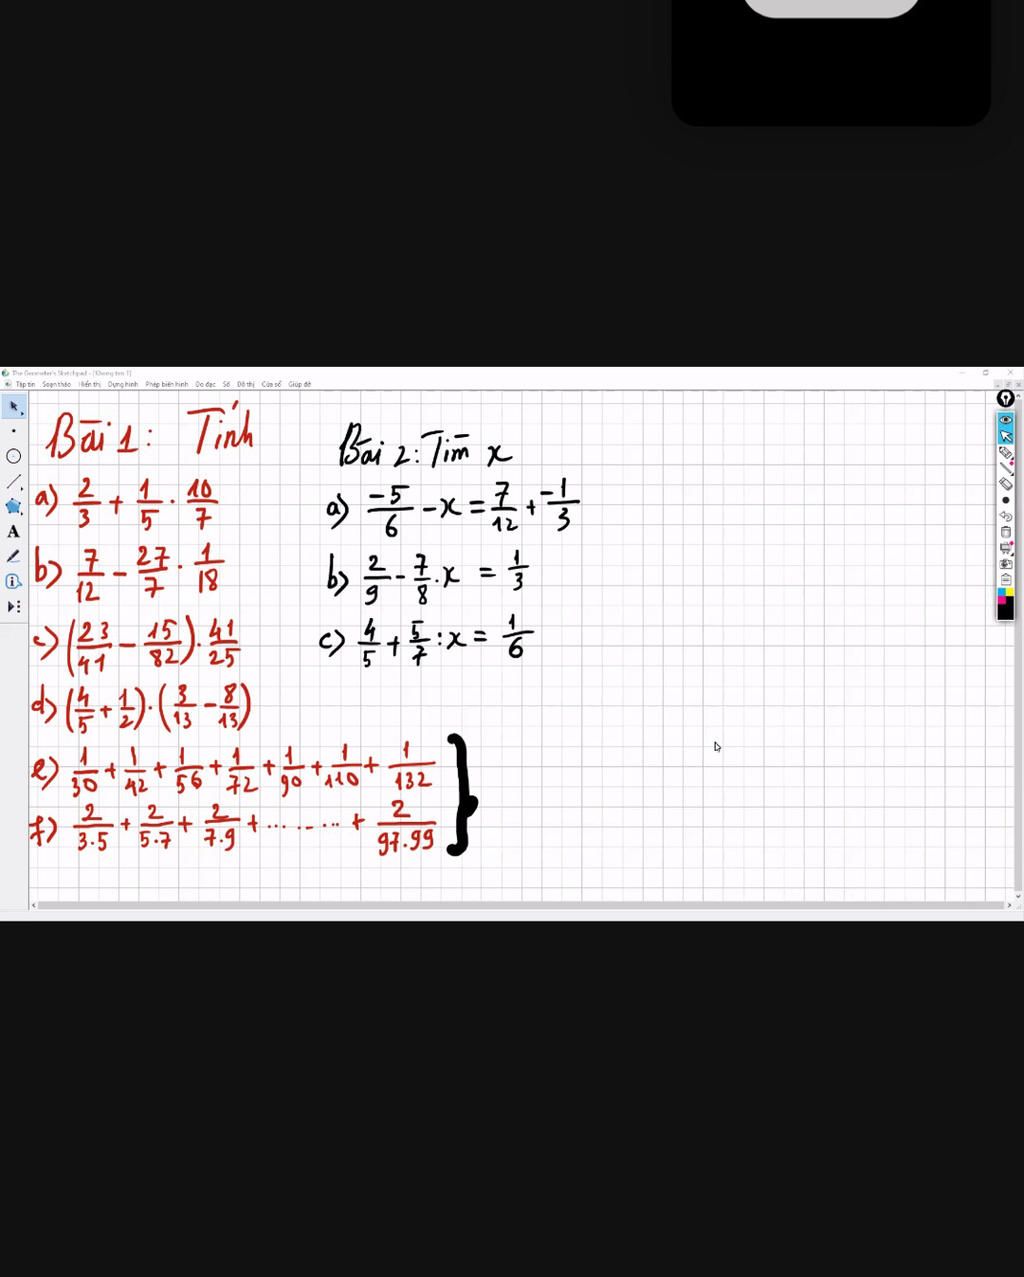 The Geometer's Sketchpad - [Khong ten 1]
Tập tin Soạn thảo Hiển thị Dựng hình Phép biến hình Đo đạc Số Đồ thị Cửa sổ Giúp đỡ
Bài 1: Tính
a) 2/3 + 1/5 . 10/7
b) 7/12 - 27/7 . 1/18
c) (23/41 - 15/82) . 41/25
d) (4/5 + 1/2) . (3/13 - 8/13)
e) 1/30 + 1/42 + 1/56 + 1/72 + 1/90 + 1/110 + 1/132
f) 2/3.5 + 2/5.7 + 2/7.9 + ......... + 2/97.99
Bài 2: Tìm x
a) -5/6 - x = 7/12 + -1/3
b) 2/9 - 7/8 . x = 1/3
c) 4/5 + 5/7 : x = 1/6
A